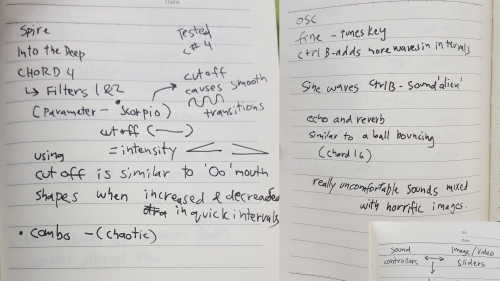 Date
Spire
Tested
C#4
Into the Deep
CHORD 4
↳ Filters 1&2
cutoff
causes smooth
transitions
(Parameter - scorpio)
cutoff (——)
= intensity < >
using
cut off is similar to 'Oo' mouth
shapes when increased & decreased
in quick intervals
• combo - (chaotic)
OSC
fine - tunes key
ctrl B - adds more waves in intervals
Sine waves Ctrl B - sound 'alien'
echo and reverb
similar to a ball bouncing
(chord 16)
really uncomfortable sounds mixed
with horrific images.
No
Date
sound
Image/Video
controllers ↔ sliders
↓